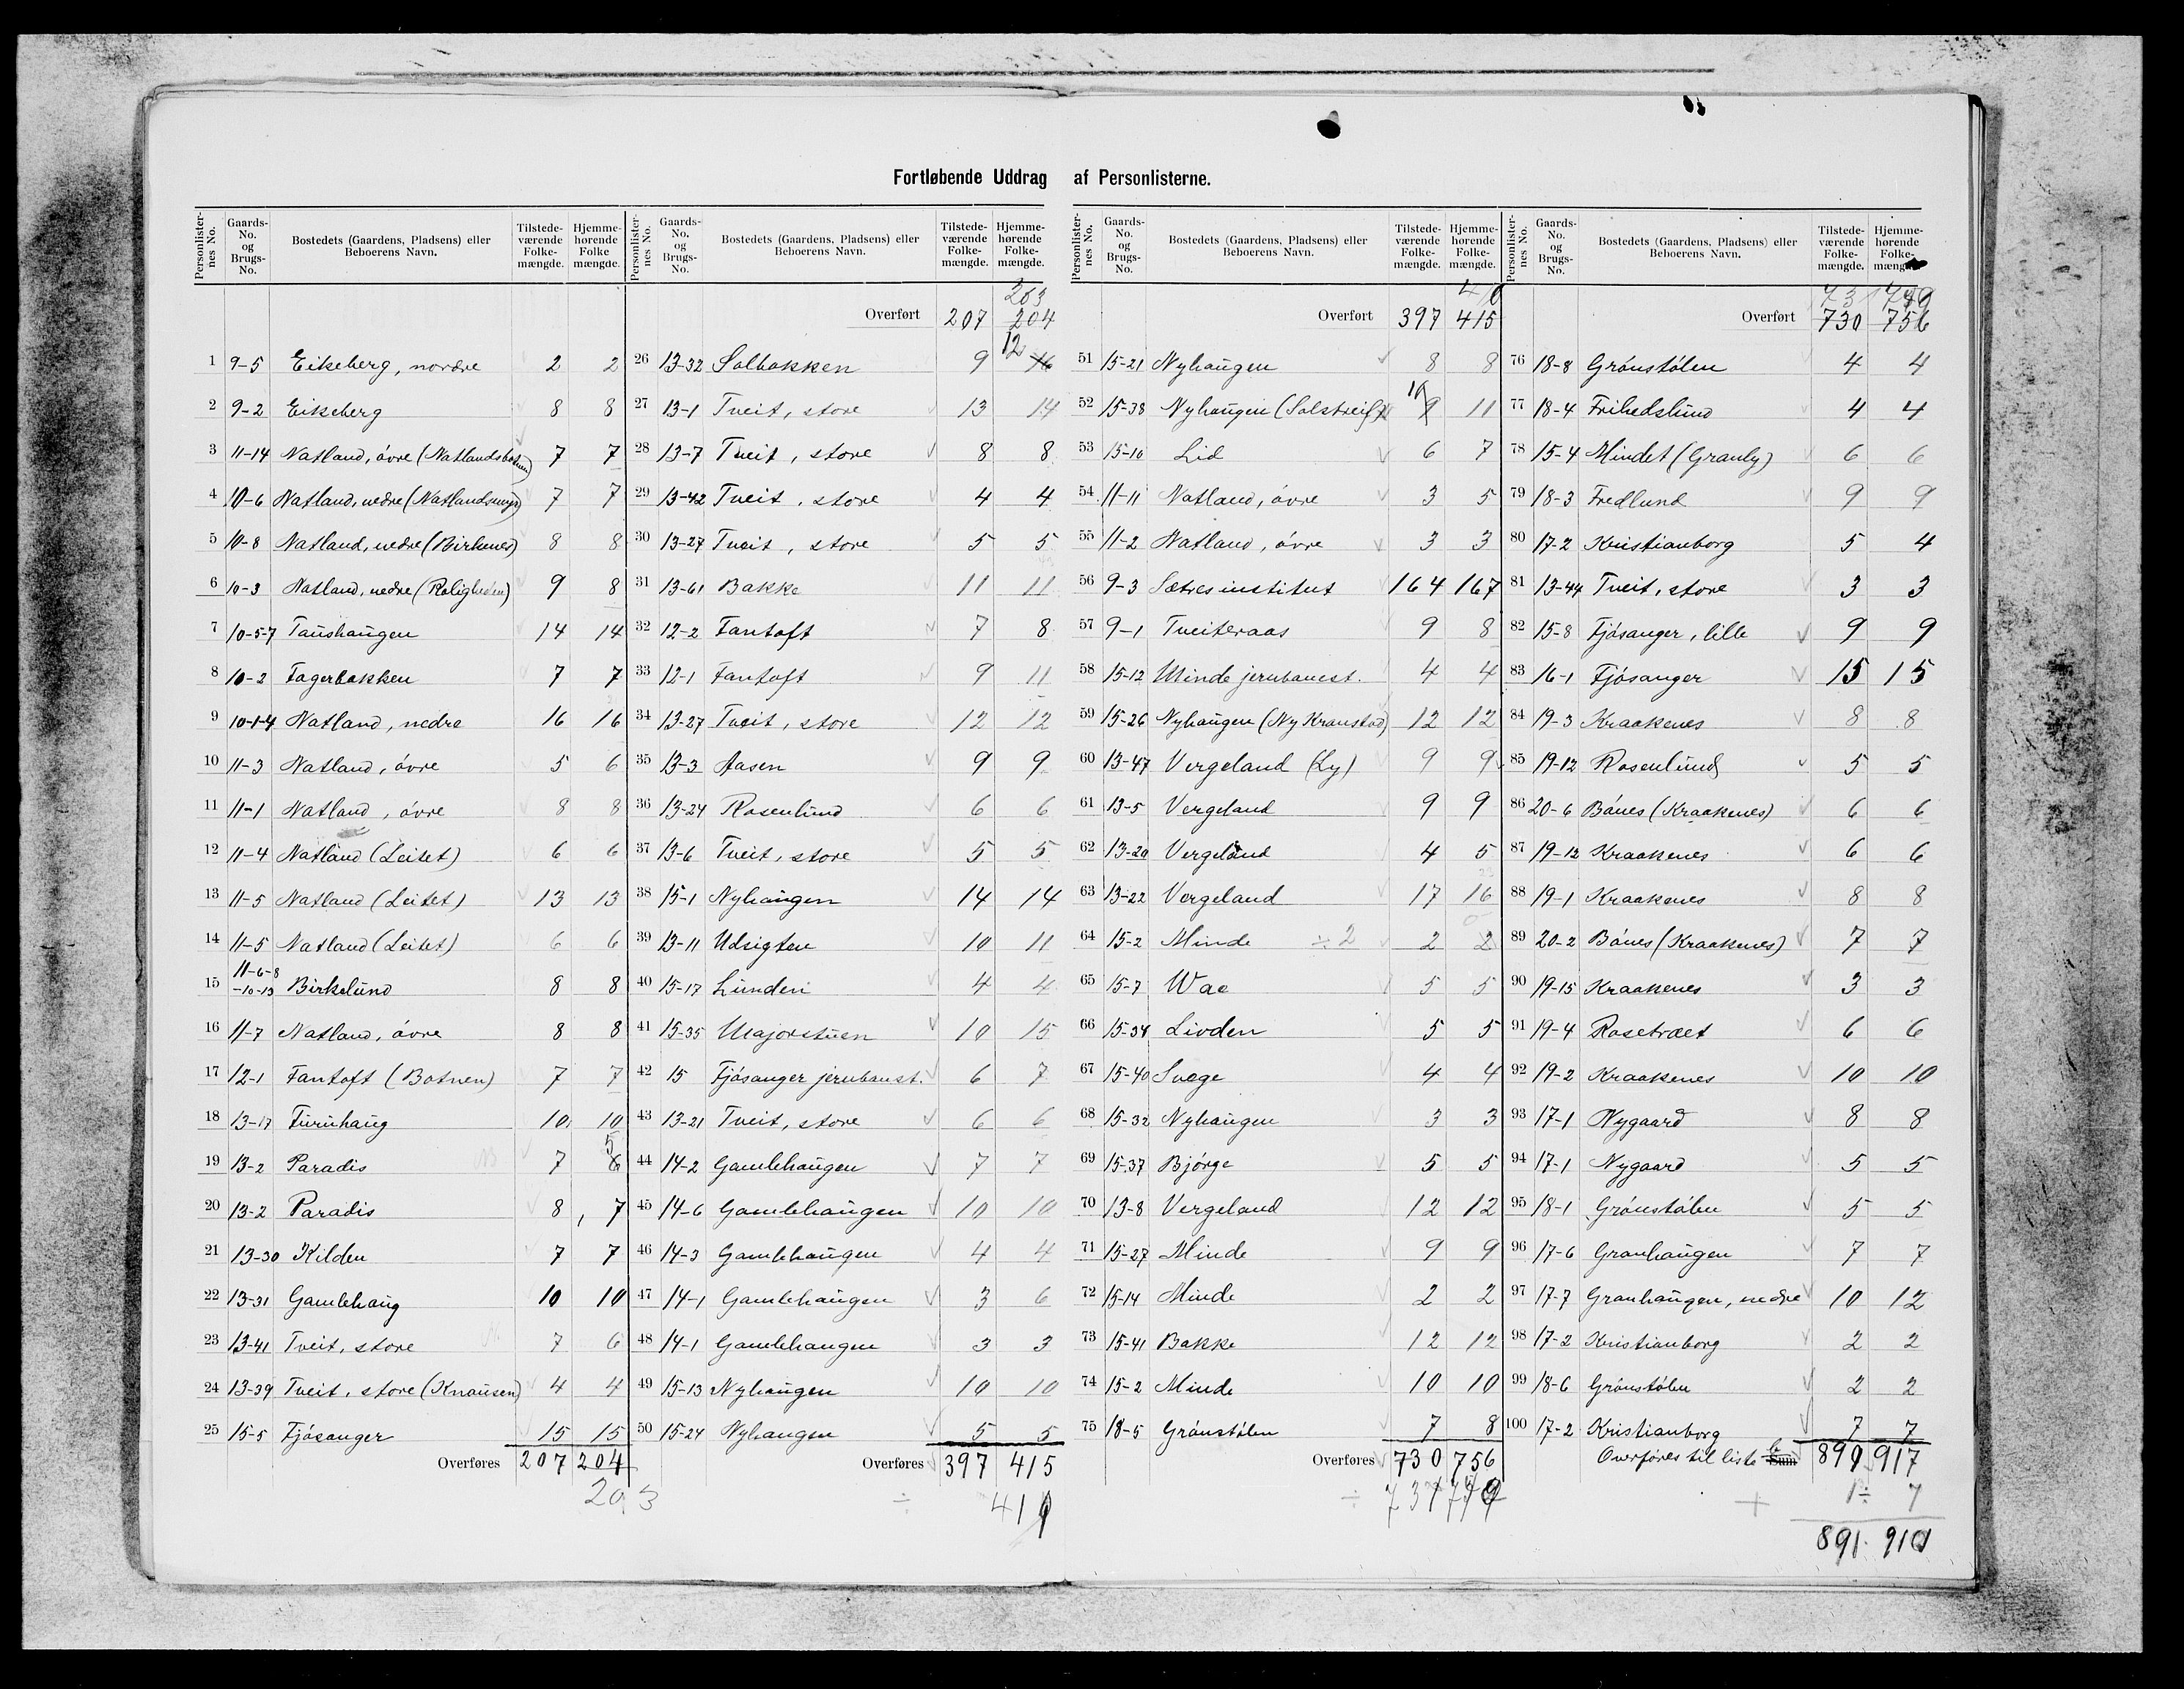 Fortløbende Uddrag af Personlisterne.
Personlisternes No. Gaards-No. og Brugs-No. Bostedets (Gaardens, Pladsens) eller Beboerens Navn. Tilstedeværende Folkemængde. Hjemmehørende Folkemængde.
1 9-5 Eikeberg, nordre 2 2
2 9-2 Eikeberg 8 8
3 11-14 Natland, øvre (Natlandsbotnen) 7 7
4 10-6 Natland, nedre (Natlandsmyr) 7 7
5 10-8 Natland, nedre (Birkenes) 8 8
6 10-3 Natland, nedre (Roligheden) 9 8
7 10-5-7 Taushaugen 14 14
8 10-2 Fagerbakken 7 7
9 10-1-4 Natland, nedre 16 16
10 11-3 Natland, øvre 5 6
11 11-1 Natland, øvre 8 8
12 11-4 Natland (Leitet) 6 6
13 11-5 Natland (Leitet) 13 13
14 11-5 Natland (Leitet) 6 6
15 11-6-8-10-13 Birkelund 8 8
16 11-7 Natland, øvre 8 8
17 12-1 Fantoft (Botnen) 7 7
18 13-17 Furuhaug 10 10
19 13-2 Paradis 7 6 5
20 13-2 Paradis 8, 7
21 13-30 Kilden 7 7
22 13-31 Gamlehaug 10 10
23 13-41 Tveit, store 7 6
24 13-39 Tveit, store (Knausen) 4 4
25 15-5 Fjøsanger 15 15
Overføres 207 204
203
Personlisternes No. Gaards-No. og Brugs-No. Bostedets (Gaardens, Pladsens) eller Beboerens Navn. Tilstedeværende Folkemængde. Hjemmehørende Folkemængde.
203
Overført 207 204
26 13-32 Solbakken 9 16 12
27 13-1 Tveit, store 13 14
28 13-7 Tveit, store 8 8
29 13-42 Tveit, store 4 4
30 13-27 Tveit, store 5 5
31 13-61 Bakke 11 11
32 12-2 Fantoft 7 8
33 12-1 Fantoft 9 11
34 13-27 Tveit, store 12 12
35 13-3 Aasen 9 9
36 13-24 Rosenlund 6 6
37 13-6 Tveit, store 5 5
38 15-1 Nyhaugen 14 14
39 13-11 Udsigten 10 11
40 15-17 Lunden 4 4
41 15-35 Majorstuen 10 15
42 15 Fjøsanger jernbanest. 6 7
43 13-21 Tveit, store 6 6
44 14-2 Gamlehaugen 7 7
45 14-6 Gamlehaugen 10 10
46 14-3 Gamlehaugen 4 4
47 14-1 Gamlehaugen 3 6
48 14-1 Gamlehaugen 3 3
49 15-13 Nyhaugen 10 10
50 15-24 Nyhaugen 5 5
Overføres 397 415
÷
Personlisternes No. Gaards-No. og Brugs-No. Bostedets (Gaardens, Pladsens) eller Beboerens Navn. Tilstedeværende Folkemængde. Hjemmehørende Folkemængde.
Overført 397 415
51 15-21 Nyhaugen 8 8
52 15-38 Nyhaugen (Solstreif) 9 10 11
53 15-10 Lid 6 7
54 11-11 Natland, øvre 3 5
55 11-2 Natland, øvre 3 3
56 9-3 Sætres institut 164 167
57 9-1 Tveiteraas 9 8
58 15-12 Minde jernbanest. 4 4
59 15-26 Nyhaugen (Ny Kronstad) 12 12
60 13-47 Vergeland (Ly) 9 9
61 13-5 Vergeland 9 9
62 13-20 Vergeland 4 5
63 13-22 Vergeland 17 16
64 15-2 Minde ÷2 2 2
65 15-7 Wae 5 5
66 15-34 Livden 5 5
67 15-40 Svege 4 4
68 15-32 Nyhaugen 3 3
69 15-37 Bjørge 5 5
70 13-8 Vergeland 12 12
71 15-27 Minde 9 9
72 15-14 Minde 2 2
73 15-41 Bakke 12 12
74 15-2 Minde 10 10
75 18-5 Grønstølen 7 8
Overføres 730 756
÷ 731
Personlisternes No. Gaards-No. og Brugs-No. Bostedets (Gaardens, Pladsens) eller Beboerens Navn. Tilstedeværende Folkemængde. Hjemmehørende Folkemængde.
Overført 730 756
76 18-8 Grønstølen 4 4
77 18-4 Frihedslund 4 4
78 15-4 Mindet (Granly) 6 6
79 18-3 Fredlund 9 9
80 17-2 Kristianborg 5 4
81 13-44 Tveit, store 3 3
82 15-8 Fjøsanger, lille 9 9
83 16-1 Fjøsanger 15 15
84 19-3 Kraakenes 8 8
85 19-12 Rosenlund 5 5
86 20-6 Bønes (Kraakenes) 6 6
87 19-12 Kraakenes 6 6
88 19-1 Kraakenes 8 8
89 20-2 Bønes (Kraakenes) 7 7
90 19-15 Kraakenes 3 3
91 19-4 Rosetræet 6 6
92 19-2 Kraakenes 10 10
93 17-1 Nygaard 8 8
94 17-1 Nygaard 5 5
95 18-1 Grønstølen 5 5
96 17-6 Granhaugen 7 7
97 17-7 Granhaugen, nedre 10 12
98 17-2 Kristianborg 2 2
99 18-6 Grønstølen 2 2
100 17-2 Kristianborg 7 7
Overføres til liste 6 Sum 890 917
+ 1 ÷ 7
891. 910